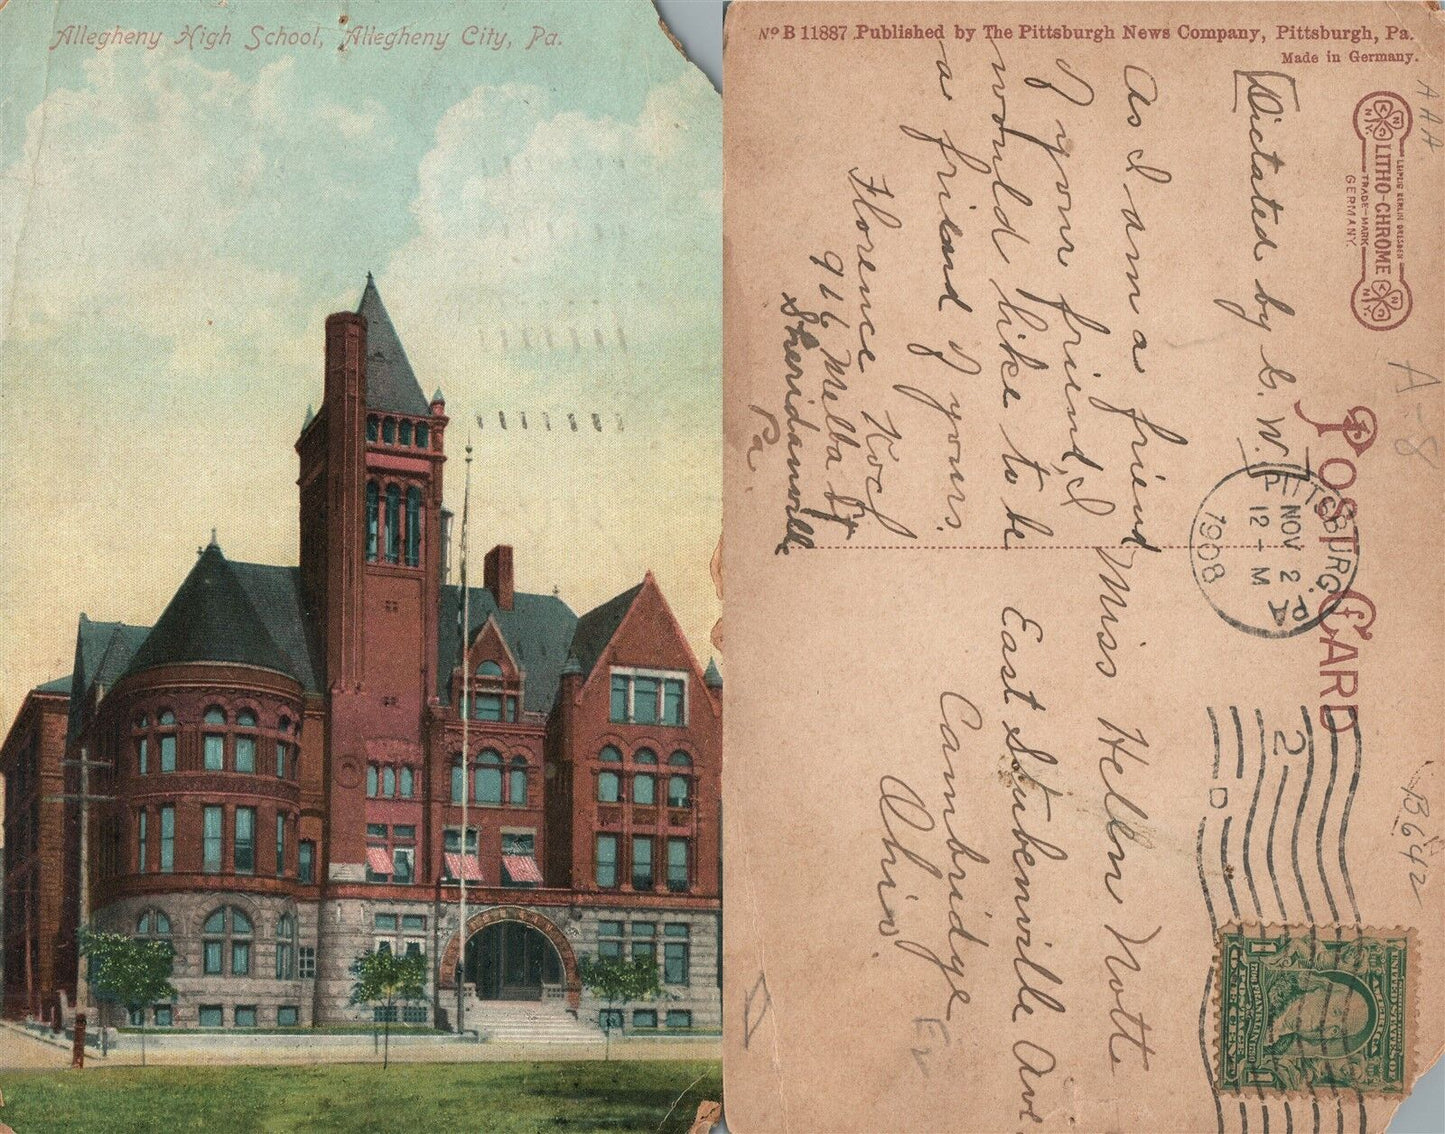 Allegheny High School, Allegheny City, Pa.
No B 11887 Published by The Pittsburgh News Company, Pittsburgh, Pa.
Made in Germany.
AAA
LEIPZIG BERLIN DRESDEN
LITHO-CHROME
TRADE-MARK
GERMANY.
A-8
POST CARD
B642
Dictated by C. W.
As I am a friend
of your friend, I
would like to be
a friend of yours.
Florence Koch
916 Melba St
Sheridanville
Pa.
PITTSBURG. PA
NOV 2
12-M
1908
2
D
Miss Hellen Nott
East Stubenville Ave
Cambridge
Ohio.